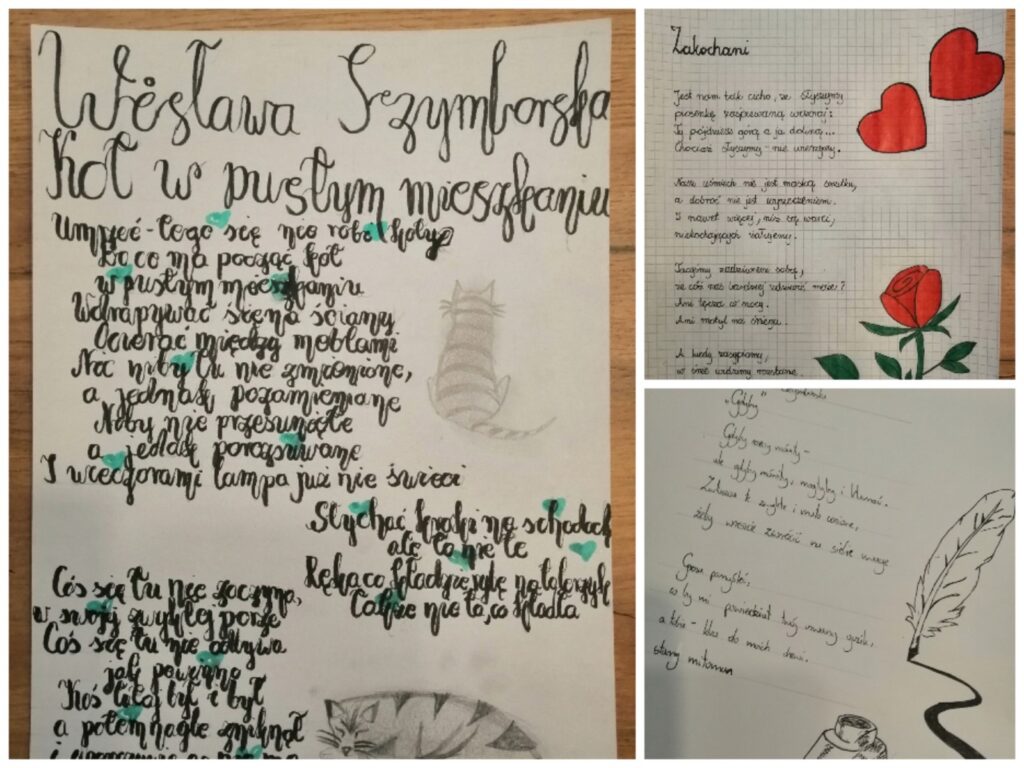 Wisława Szymborska
Kot w pustym mieszkaniu
Umrzeć - tego się nie robi kotu
Bo co ma począć kot
w pustym mieszkaniu
Wdrapywać się na ściany
Ocierać między meblami
Nic niby tu nie zmienione,
a jednak pozamieniane
Niby nie przesunięte
a jednak porozsuwane
I wieczorami lampa już nie świeci
Słychać kroki na schodach
ale to nie te
Ręka co kładzie rybę na talerzyk
Także nie ta, co kładła
Coś się tu nie zaczyna,
w swojej zwykłej porze
Coś się tu nie odbywa
jak powinno
Ktoś tutaj był i był
a potem nagle zniknął
Zakochani
Jest nam tak cicho, że słyszymy
piosenkę zaśpiewaną wczoraj:
Ty pójdziesz górą a ja doliną...
Chociaż słyszymy - nie wierzymy.
Nasz uśmiech nie jest maską smutku,
a dobroć nie jest wyrzeczeniem.
I nawet więcej, niż są warci,
niekochających żałujemy.
Tacyśmy zadziwieni sobą,
że cóż nas bardziej zdziwić może?
Ani tęcza w nocy.
Ani motyl na śniegu.
A kiedy zasypiamy,
w śnie widzimy rozstanie.
Szymborska
„Gdyby"
Gdyby rzeczy mówiły -
ale gdyby mówiły, mogłyby i kłamać.
Zwłaszcza te zwykłe i mało cenione,
żeby wreszcie zwrócić na siebie uwagę
Groza pomyśleć,
co by mi powiedział twój urwany guzik,
a tobie - klucz do moich drzwi,
stary mitoman